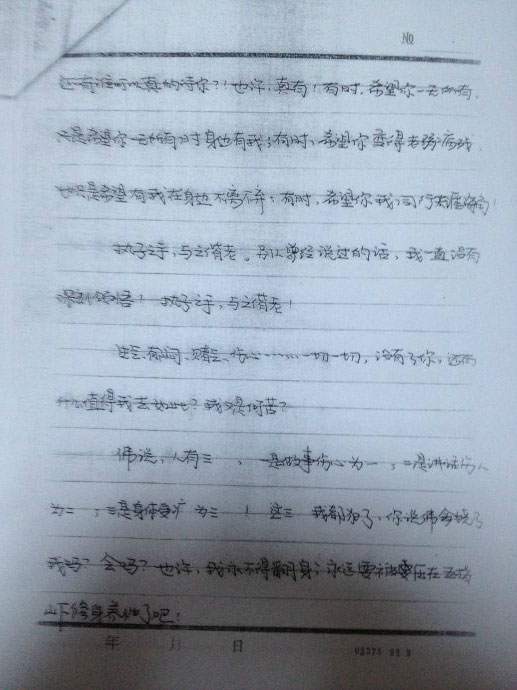 №
还有谁可以真的等你?！也许,真有！有时,希望你一无所有,
只是希望你一无所有时身边有我；有时,希望你变得老弱病残,
也只是希望有我在身边不离弃；有时,希望你我,
执子之手,与之偕老。曾经说过的话,我一直没有
深刻领悟！执子之手,与之偕老！
生气、郁闷、赌气、伤心……一切一切,没有了你,还有
什么值得我去如此？我又是何苦？
佛说,人有三 , 一是做事伤心为一,二是讲话伤人
为二 ,三是身体受 为三 ！这三 我都犯了,你说佛会饶了
我吗？会吗？也许,我永不得翻身；永远要被压在五指
山下修身养性了吧！
年 月 日